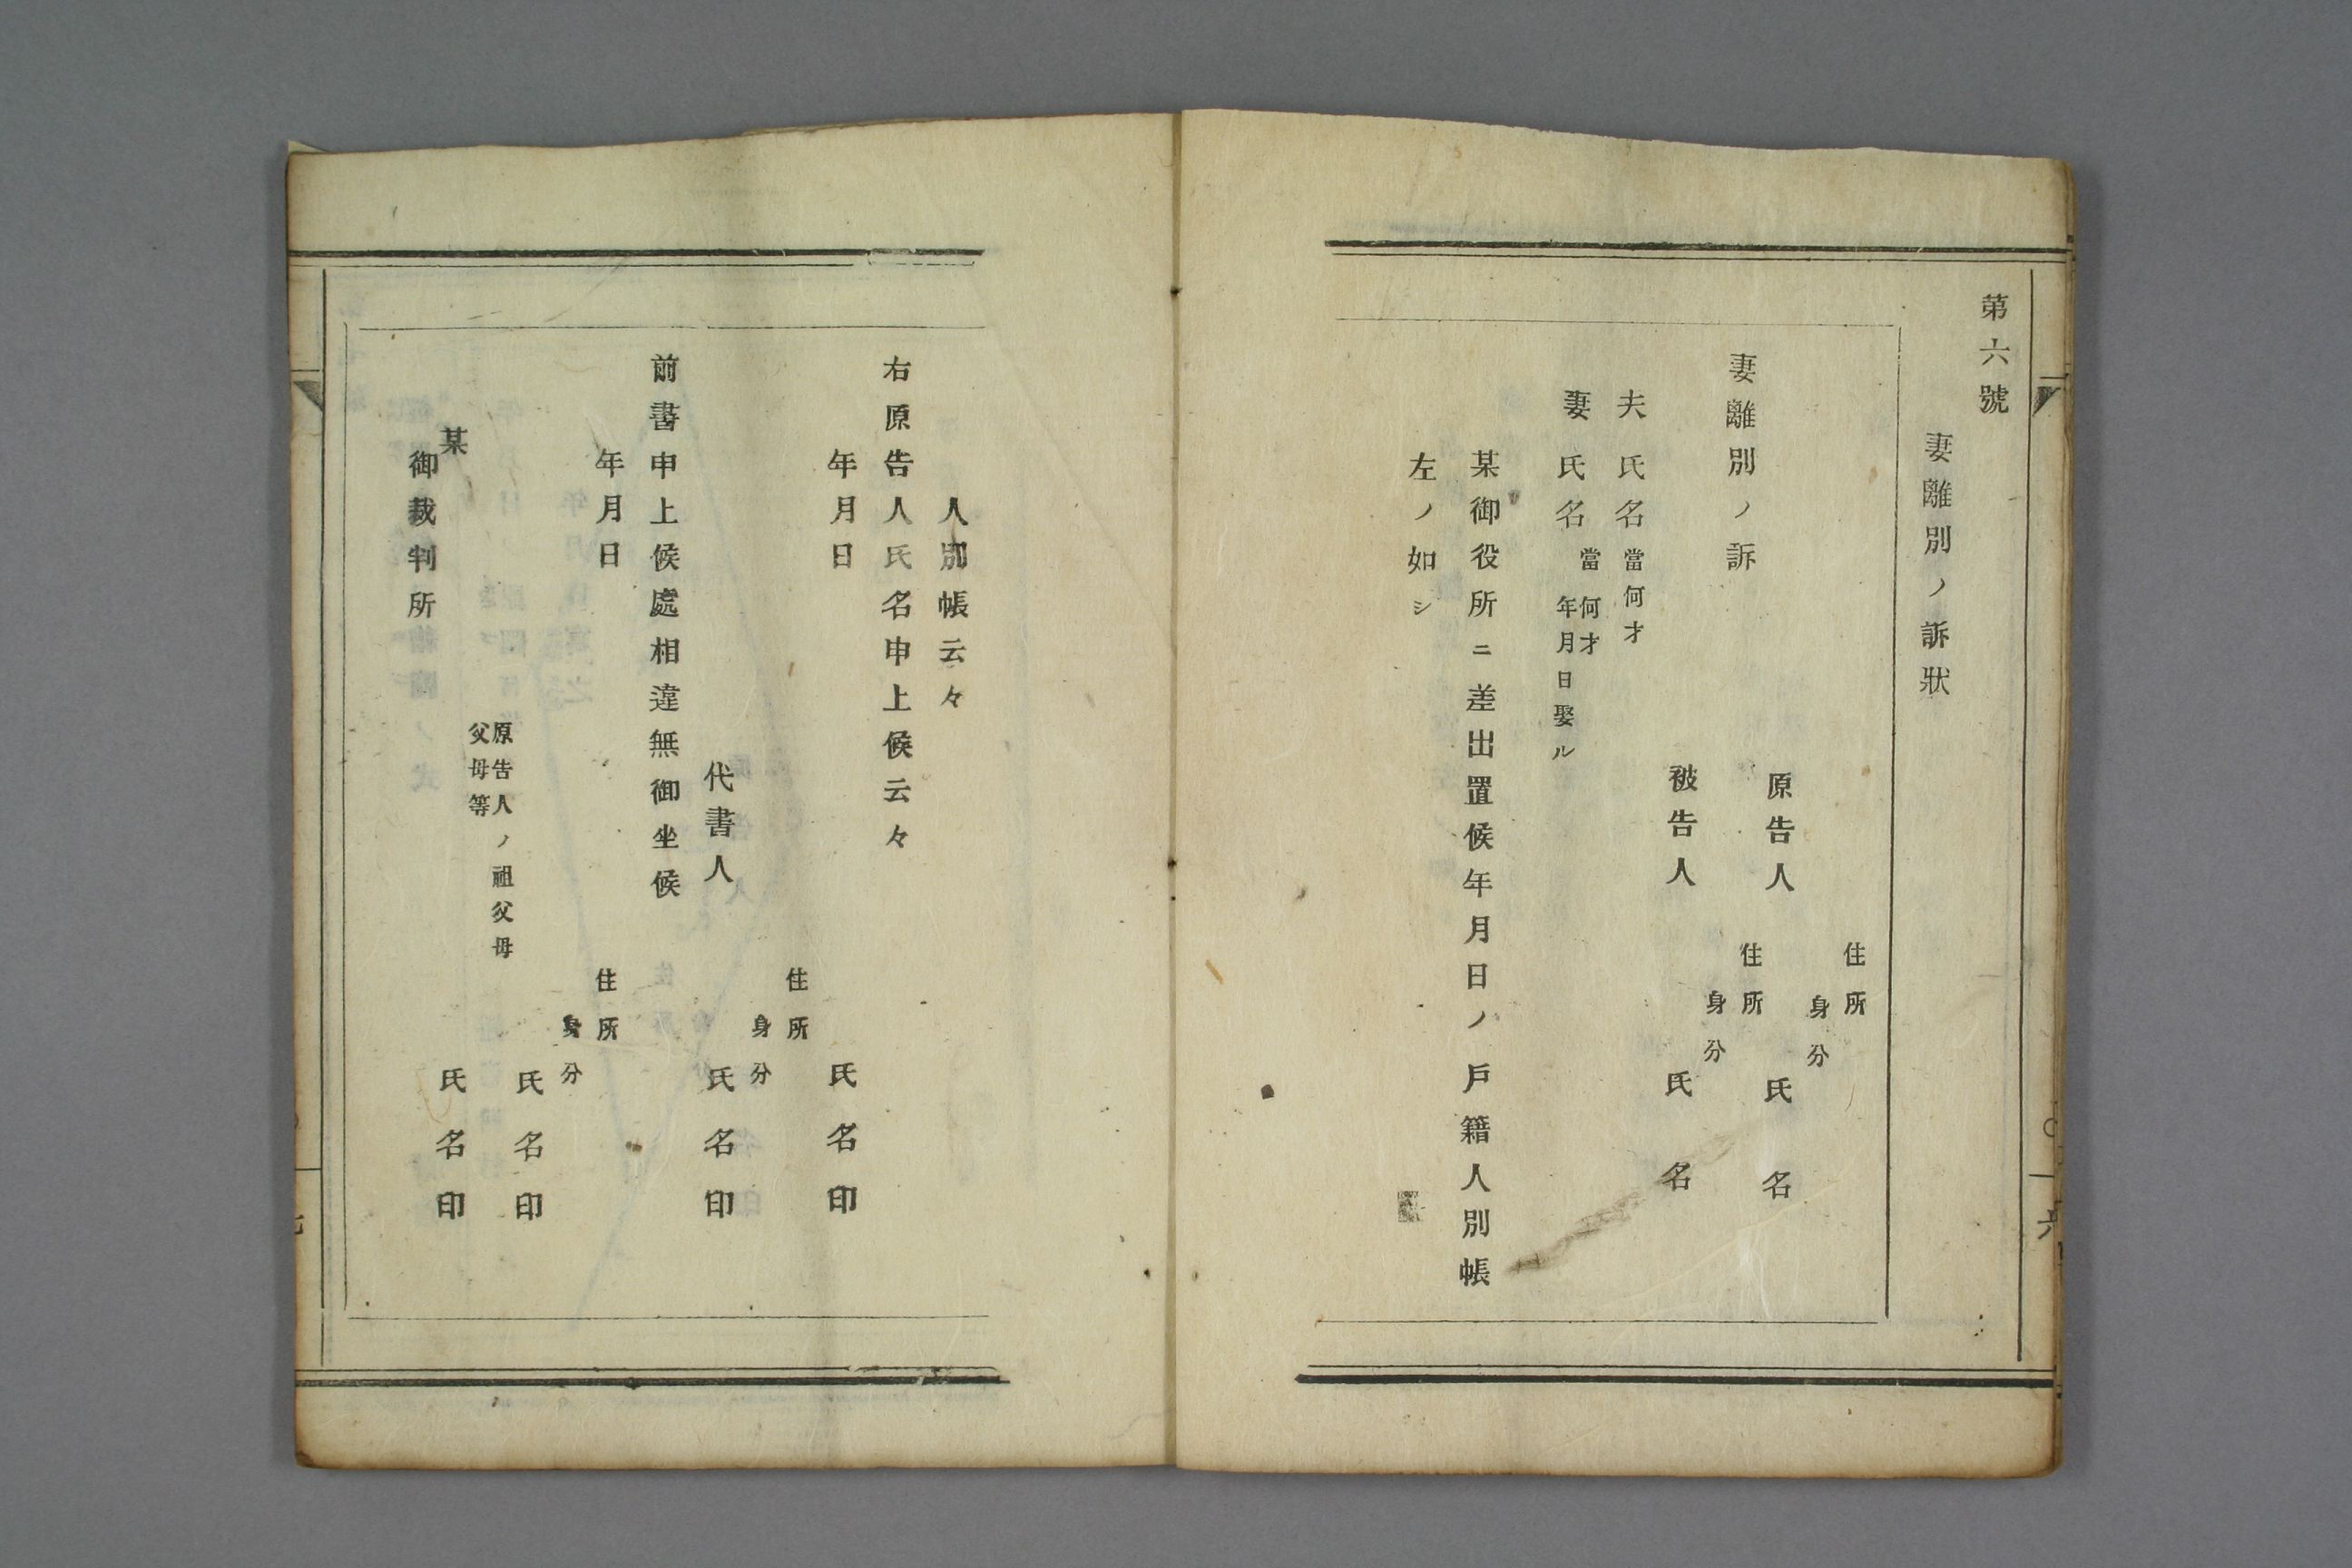 第六號
妻離別ノ訴狀
住所
身分
原告人 氏名
妻離別ノ訴
住所
身分
被告人 氏名
夫 氏名 當何才
妻 氏名 當何才
年月日娶ル
某御役所ニ差出置候年月日ノ戶籍人別帳
左ノ如シ
六
人別帳云々
右原告人氏名申上候云々
年月日
氏名印
住所
身分
代書人 氏名印
前書申上候處相違無御坐候
年月日
住所
身分
氏名印
原告人ノ祖父母
父母等
氏名印
某
御裁判所